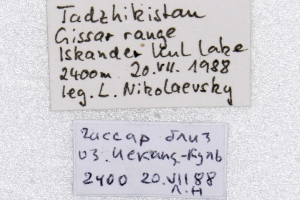 Tadzhikistan
Gissar range
Iskander Kul lake
2400m 20.VII.1988
leg. L. Nikolaevsky
Гиссар близ
оз. Исканд-Куль
2400 20.VII 88
Л.Н